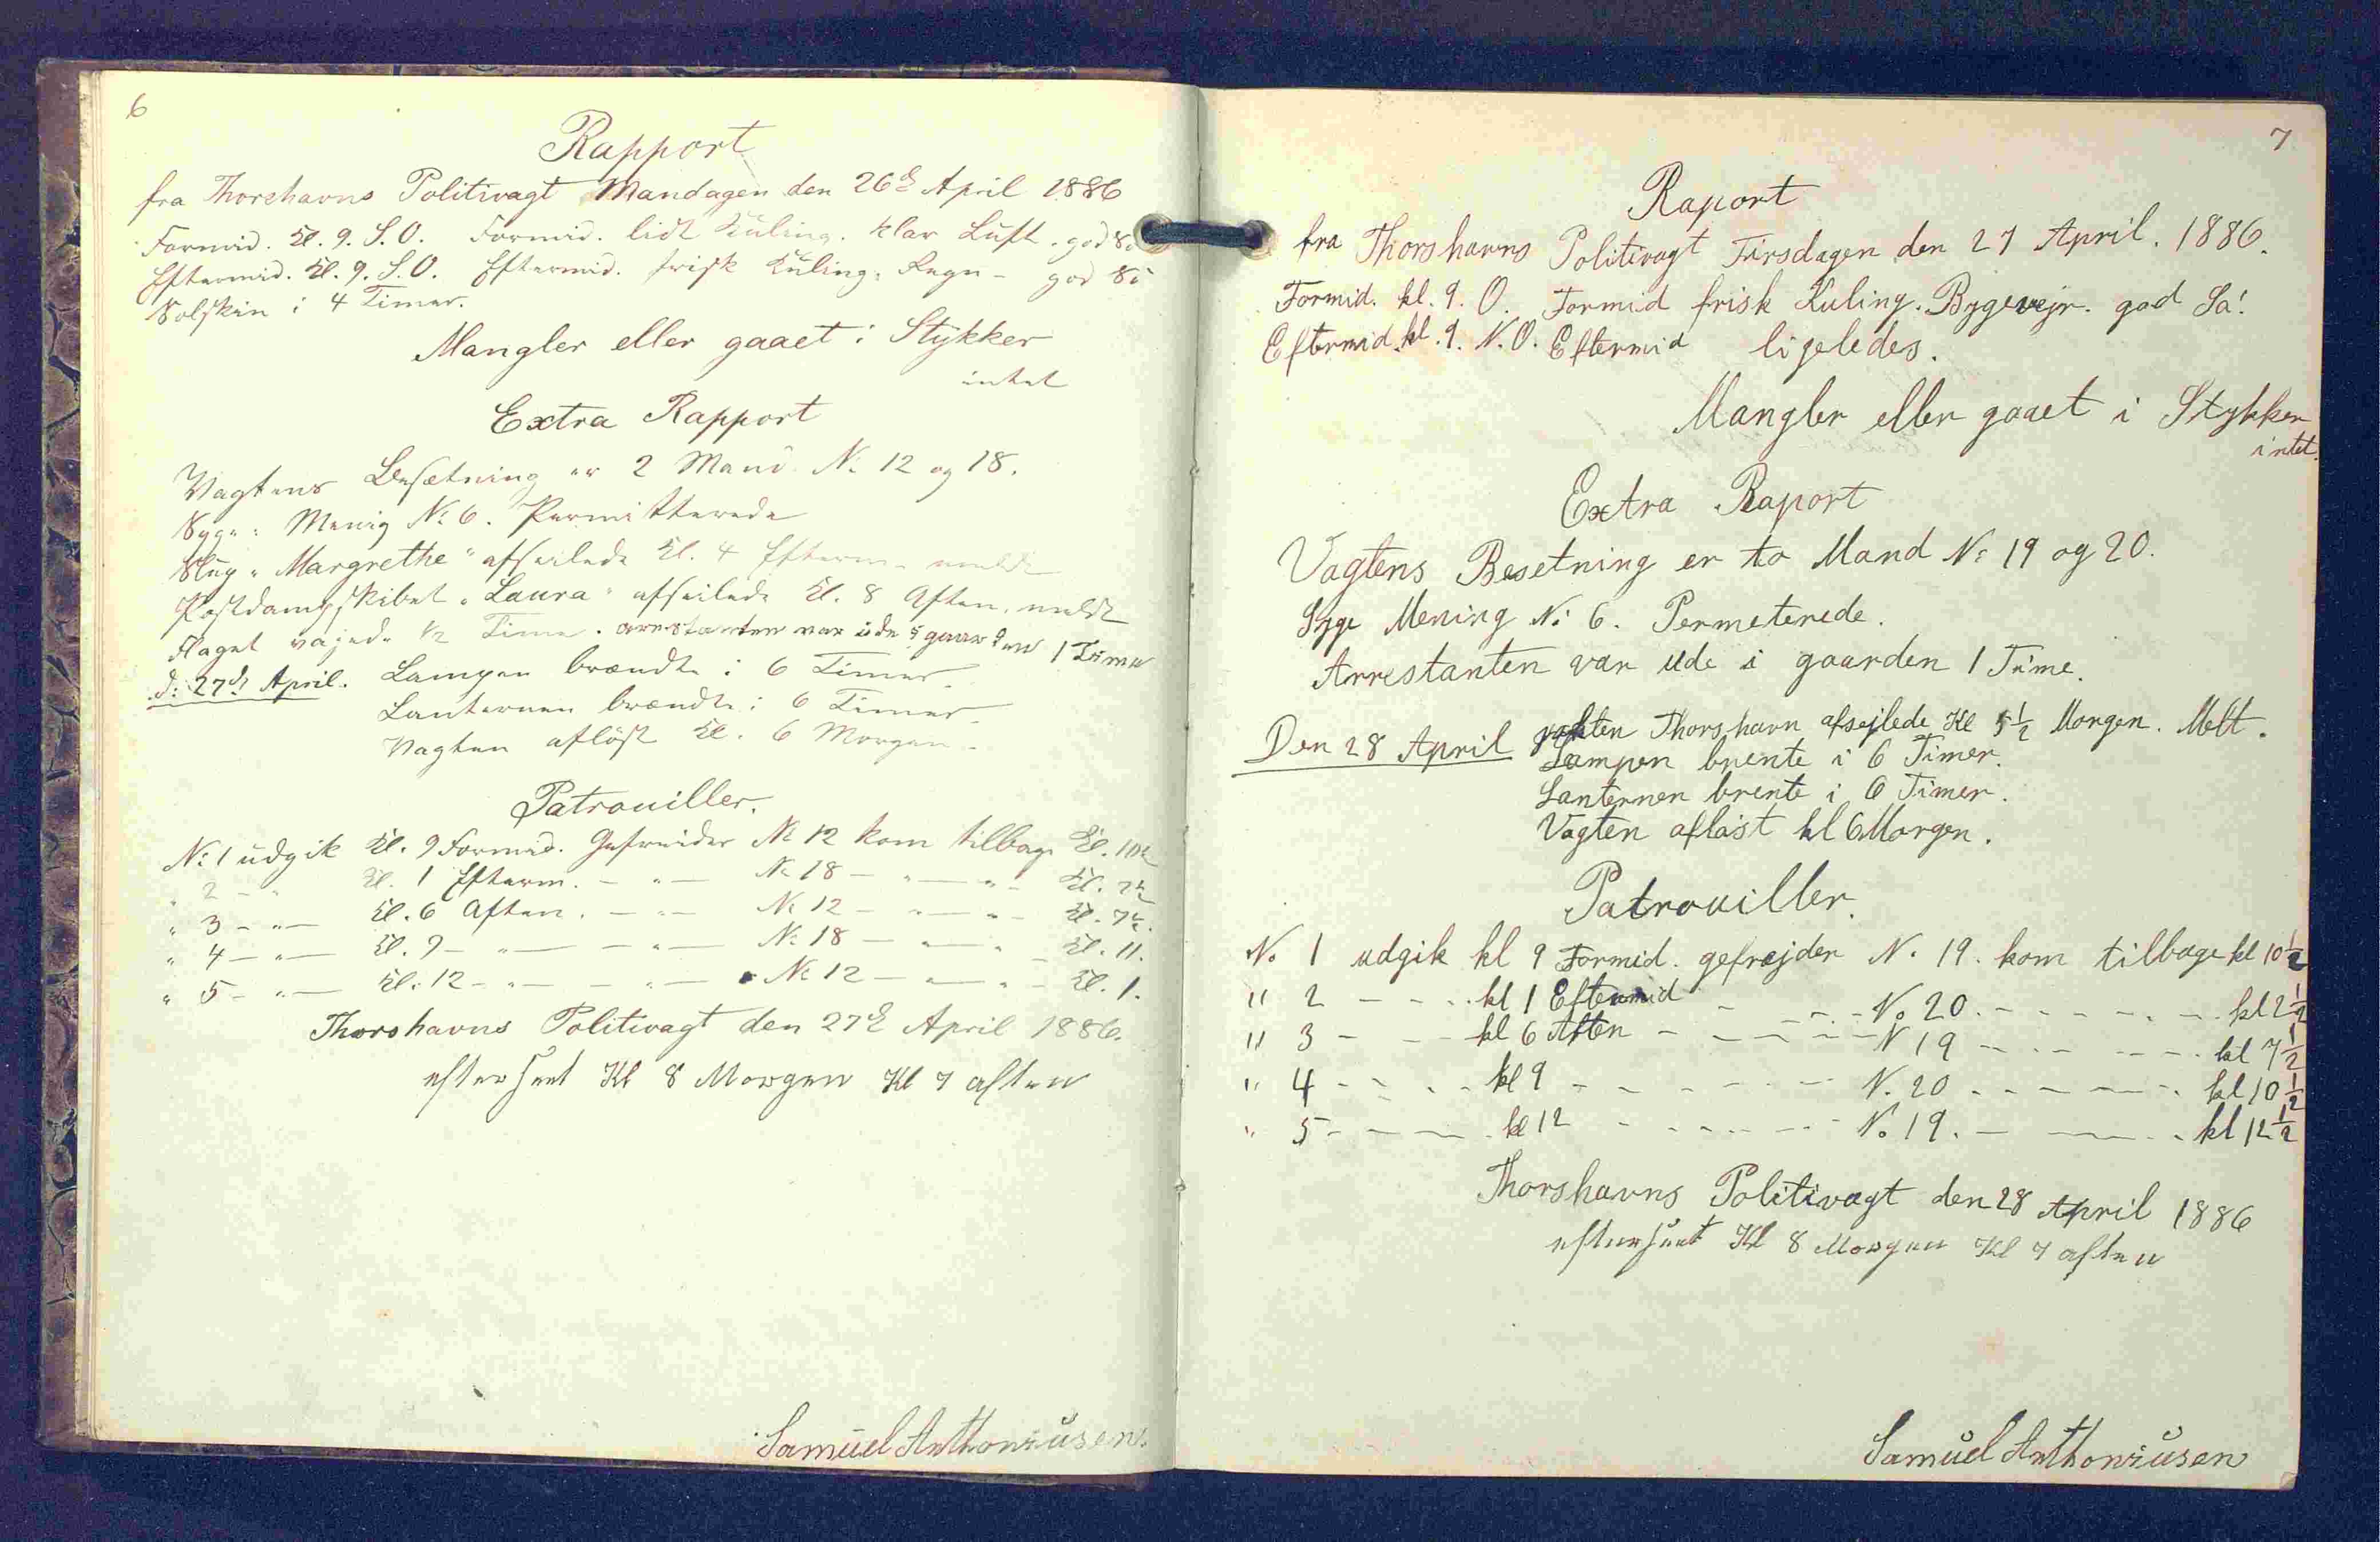 6
Rapport
fra Thorshavns Politivagt Mandagen den 26d April 1886
Formid. Kl. 9. S.O. Formid. lidt Kuling. klar Luft. god
Eftermid. Kl. 9. S.O. Eftermid. frisk Kuling. Regn - god
Solskin i 4 Timer.
Mangler eller gaaet i Stykker
intet
Extra Rapport
Vagtens Besætning er 2 Mand No 12 og 18.
Syge: Menig No 6. Permitterede
Slup "Margrethe" afseilede Kl. 4 Efterm. meldt
Postdampskibet "Laura" afseilede Kl. 8 Aften, meldt
Flaget vajede 1/2 Time. arrestanten var ude i gaarden 1 Time
d: 27d April. Lampen brændte i 6 Timer.
Lanternen brændte i 6 Timer.
Vagten aflöst Kl. 6 Morgen.
Patrouiller.
No 1 udgik Kl. 9 Formid. Gefreider No 12 kom tilbage Kl. 10½
" 2 - " Kl. 1 Efterm. - " - No 18 - " - " - Kl. 2½
" 3 - " - Kl. 6 Aften. - " - No 12 - " - " - Kl. 7½.
" 4 - " - Kl. 9 - " - - " - No 18 - " - " - Kl. 11.
" 5 - " - Kl. 12 - " - - " - No 12 - " - " - Kl. 1.
Thorshavns Politivagt den 27d April 1886.
efterseet Kl 8 Morgen Kl 7 aften
Samuel Anthoniusen.
7
Raport
fra Thorshavns Politivagt Tirsdagen den 27 April. 1886.
Formid. kl. 9. O. Formid frisk Kuling. Bygevejr. god Sa!
Eftermid. kl. 9. N.O. Eftermid ligeledes.
Mangler eller gaaet i Stykker
intet.
Extra Raport
Vagtens Besetning er to Mand No 19 og 20.
Syge Mening No 6. Permeterede.
Arrestanten var ude i gaarden 1 Time.
Den 28 April jakten Thorshavn afsejlede Kl 5½ Morgen. Melt.
Lampen brente i 6 Timer.
Lanternen brente i 6 Timer.
Vagten aflöst kl 6 Morgen.
Patrouiller.
No 1 udgik kl 9 Formid. gefrejder N. 19. kom tilbage kl 10½
" 2 - - - kl 1 Eftermid - - - No 20. - - - - kl 2½
" 3 - - - kl 6 Aften - - - - N 19 - - - - kl 7½
" 4 - - - kl 9 - - - - N. 20 - - - - kl 10½
" 5 - - - kl 12 - - - - No 19. - - - - kl 12½
Thorshavns Politivagt den 28 April 1886
efterseet Kl 8 Morgen Kl 7 aften
Samuel Anthoniusen